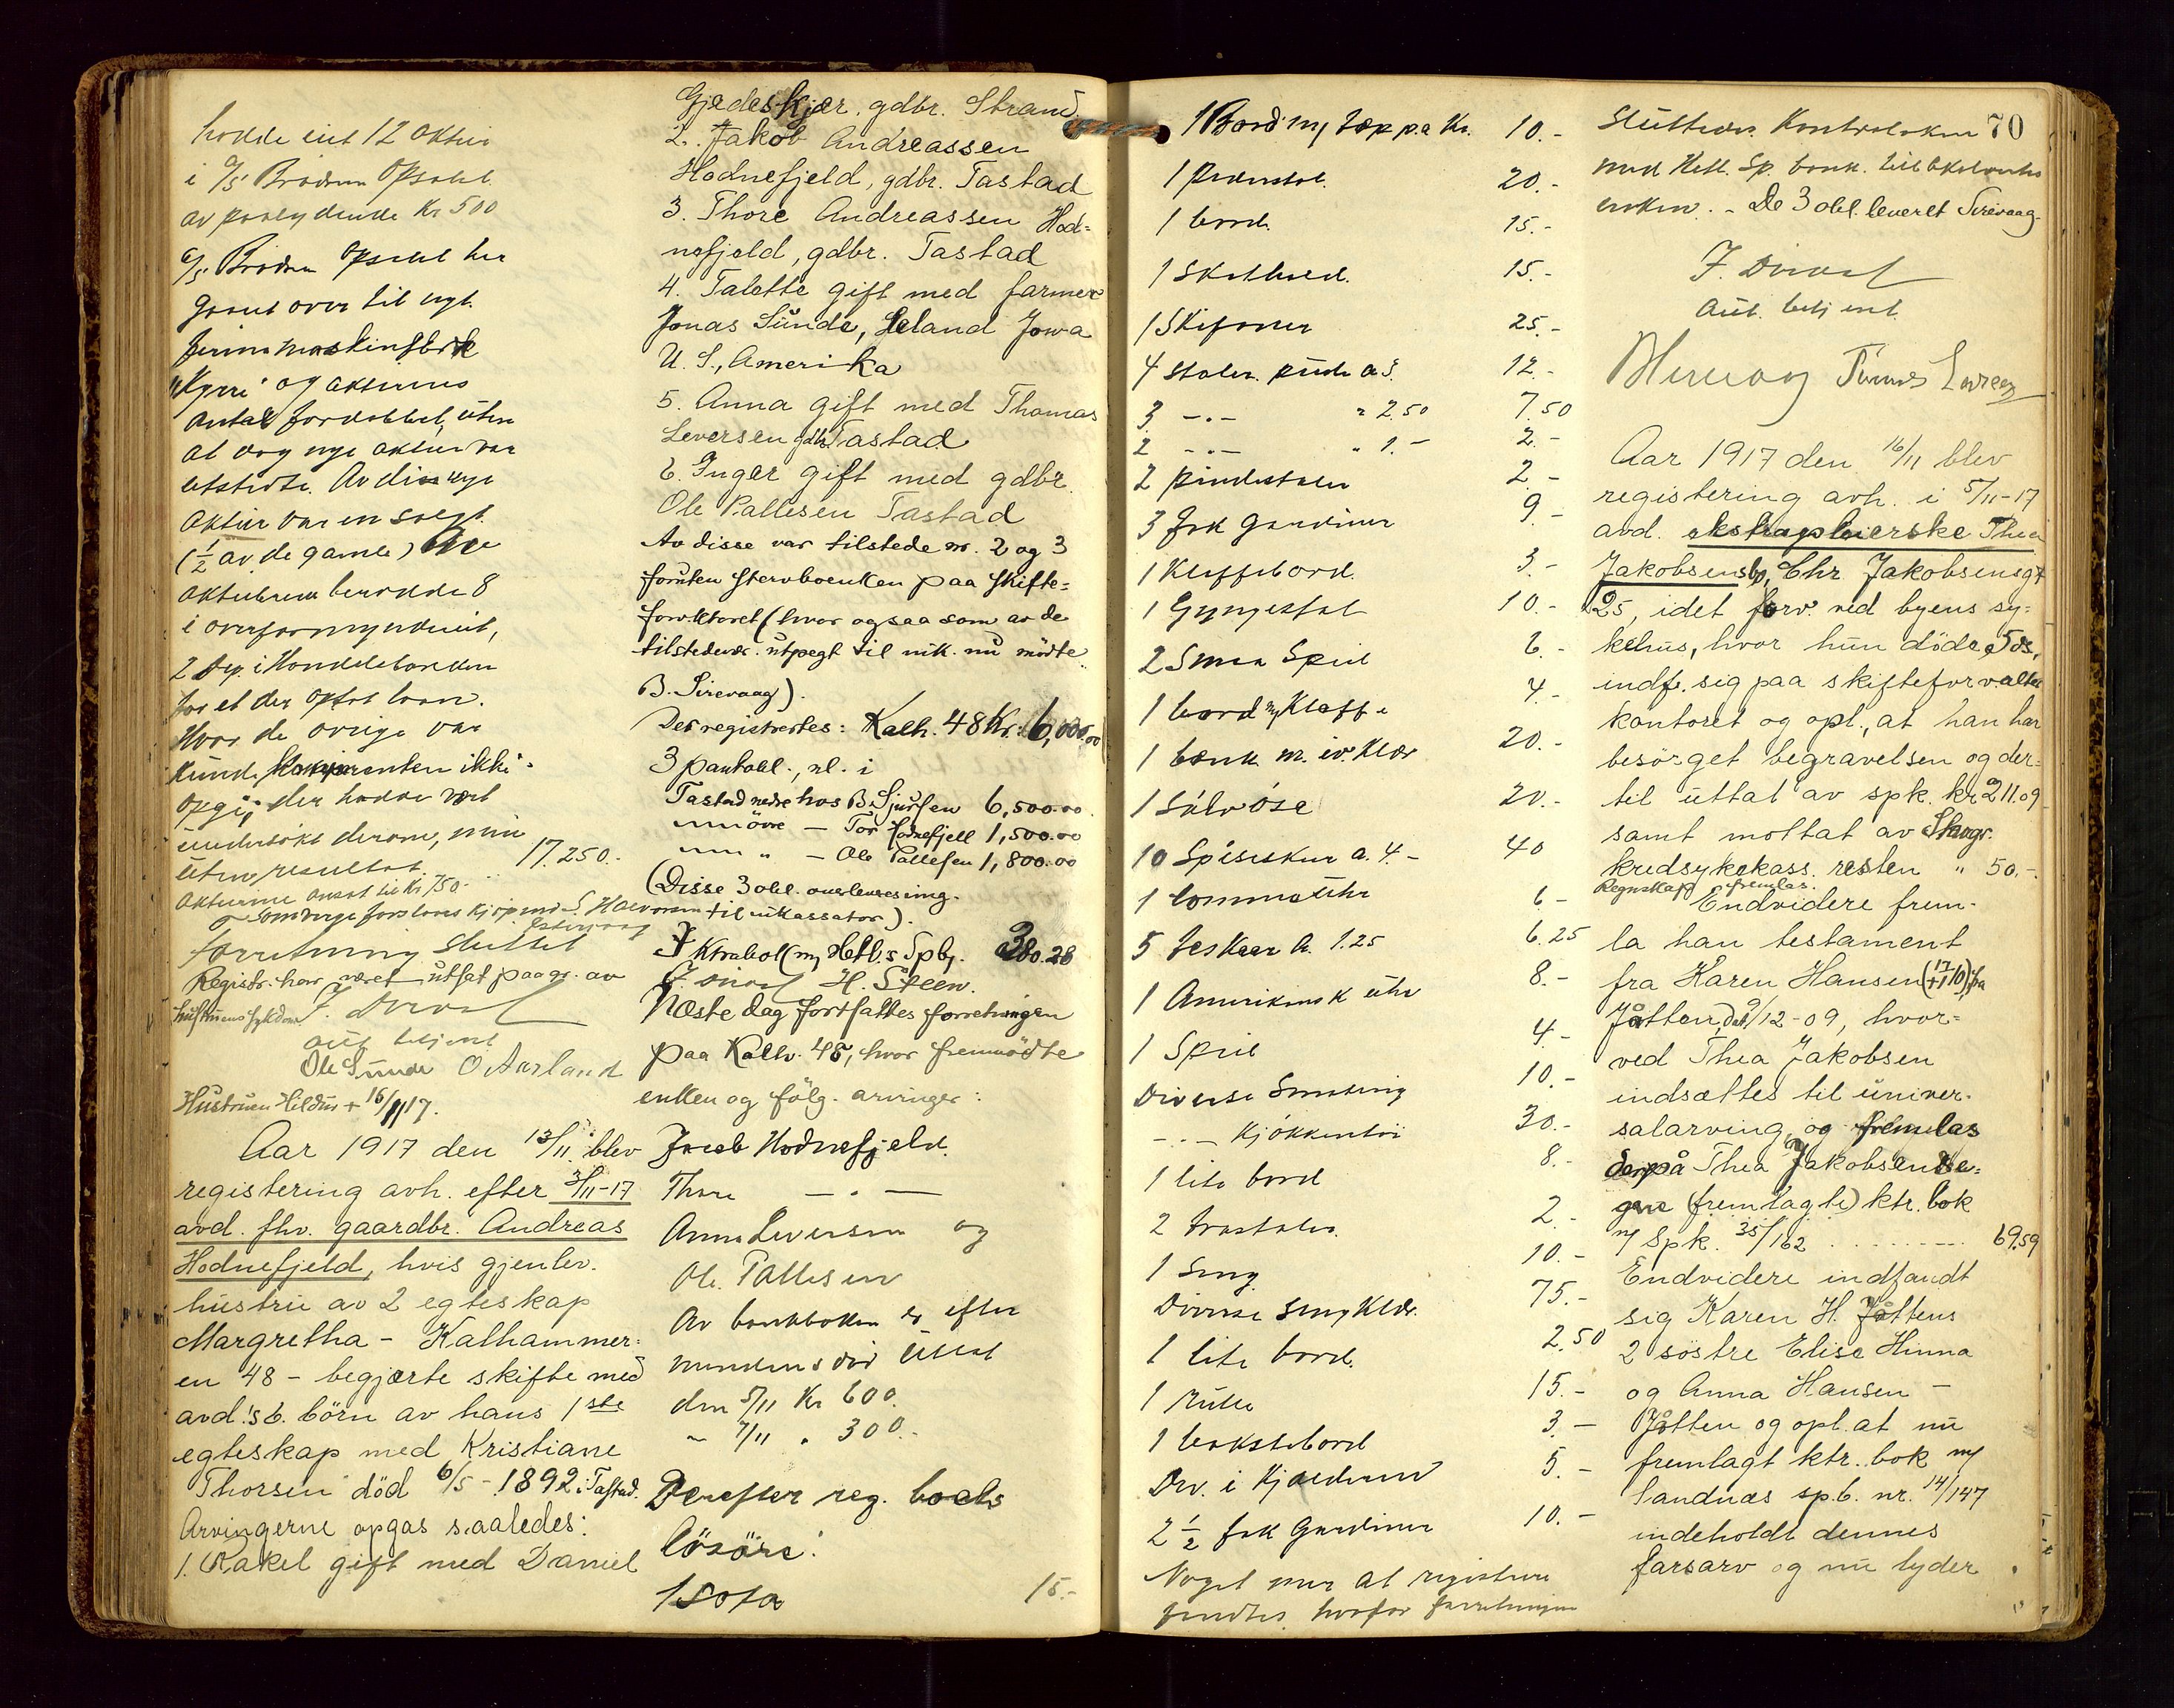 hadde eiet 12 aktier
i A/S Brødrene Opsahl
av paalydende Kr 500
A/S Brødrene Opsahl har
gaaet over til nyt
firma
"Kyrre" og aktiernes
antal fordobblet, uten
at dog nye aktier var
utstedt. Av disse nye
aktier var en solgt.
(½ av de gamle)
aktiebrev beroede 8
i overformynderiet,
2 dep. i Handelsbanken
for et der optat laan.
Hvor de øvrige var
kunde ikke
opgi, der hadde vært
undersøkt derom, men
uten resultat 17.250.-
Aktierne ansat til Kr 750.-
forretning sluttet
Registr. har været utsat paa gr. av
hustruens sykdom
aut betjent
Ole Sunde O Aarland
Hustruen Hildur + 16/11 17.
Aar 1917 den 13/11. blev
registering avh. efter 3/11-17
avd. fhv. gaardbr. Andreas
Hodnefjeld, hvis gjenlev.
hustru av 2 egteskap
Margretha - Kalhammer-
en 48 - begjærte skifte med
avd.'s 6. börn av hans 1ste
egteskap med Kristiane
Thorsen död 6/5 - 1892 i Tastad.
Arvingerne opgas saaledes:
1. Rakel gift med Daniel
Gjedeskjær, gdbr. Strand
2. Jakob Andreassen
Hodnefjeld, gdbr. Tastad
3. Thore Andreassen Hod-
nefjeld, gdbr. Tastad
4. Talette gift med farmer
Jonas Sunde, Leland Jowa
U. S., Amerika
5. Anna gift med Thomas
Leversen gdb Tastad
6. Inger gift med gdbr.
Ole Pallesen Tastad
Av disse var tilstede nr. 2 og 3
foruten stervboenken paa skifte-
forv.ktoret (hvor ogsaa som av de
tilstedevær. utpegt til ink. nu mödte
B. Sirevaag).
Der registrertes: Kalh. 48 Kr. 6,000.00
3 pantobl., nl. i
Tastad nedre hos B. Sjursen 6,500.00
" övre — Tor Hodnefjell 1,500.00
" " — Ole Pallesen 1,800.00
(Disse 3 obl. overleveres ing.
til inkassator).
1 Ktrabok m/ Hetl.s Spb. 380.28
H. Steen.
Næste dag fortsattes forretningen
paa Kalh. 48, hvor fremmödte
enken og fölg. arvinger:
Jacob Hodnefjeld.
Thore — . —
Anna Leversen og
Ole Pallesen
Av bankboken er efter
mandens död uttat
den 5/11 Kr 600.
" 7/11 " 300.-
Derefter reg. boets
lösöre:
1 Sofa 15.-
1 Bord m/ tæppe Kr. 10.-
1 20.-
1 bord. 15.-
1 Skathred. 15.-
1 Skifoner 25.-
4 stoler. a 3. 12.-
3 -.- " 2.50 7.50
2 -.- " 1.- 2.-
2 pindestoler 2.-
3 fak Gardiner 9.-
1 Klaffebord. 3.-
1 Gyngestol 10.-
2 Smaa Speil 6.-
1 bord m/ Klaffe 4.-
1 bænk m. iv. Klær 20.-
1 Sølvøse 20.-
10 Spiseskeer a. 4.- 40
1 lommeuhr 6.-
5 teskeer a. 1.25 6.25
1 Amerikansk uhr 8.-
1 Speil 4.-
Diverse Smaating 10.-
-.- Kjøkkentøi 30.-
1 lite bord 8.-
2 træstoler. 2.-
1 Seng 10.-
Diverse Sengklær. 75.-
1 lite bord. 2.50
1 Rulle 15.-
1 bakstebord 3.-
Div. i Kjælderen 5.-
2½ fak Gardiner 10.-
Noget mer at registrere
fandtes, hvorfor forretningen
70
Sluttedes. Kontraboken
med Hetl. Sp. bank. til
enken. - De 3 obl. leveret Sirevaag.
aut. betjent.
Aar 1917 den 16/11 blev
registering avh. i 5/11-17
avd. ekstrapleierske Thea
Jakobsens bo, Chr Jakobsensgt
25, idet forv. ved byens sy-
kehus, hvor hun döde,
indf. sig paa skifteforvalter
kontoret og opl., at han har
besörget begravelsen og der-
til uttat av spk. kr 211.09
samt mottat av Stavgr.
kredsykekass. resten " 50.-
Regnskap fremlas.
Endvidere frem-
la han testament
fra Karen Hansen (+ 17/1 10), fra
Jåtten, dat 9/12-09, hvor-
ved Thea Jakobsen
indsættes til univer-
salarving, og fremlas
derpå Thea Jakobsens e-
gene (fremlagte) ktr. bok
m/ Spk. 35/162 ........ 69.59
Endvidere indfandt
sig Karen H. Jåttens
2 söstre Elise Hinna
og Anna Hansen -
Jåtten og opl. at nu
fremlagt ktr. bok m/
Sandnæs sp.b. nr. 14/147
indeholdt dennes
farsarv og nu lyder